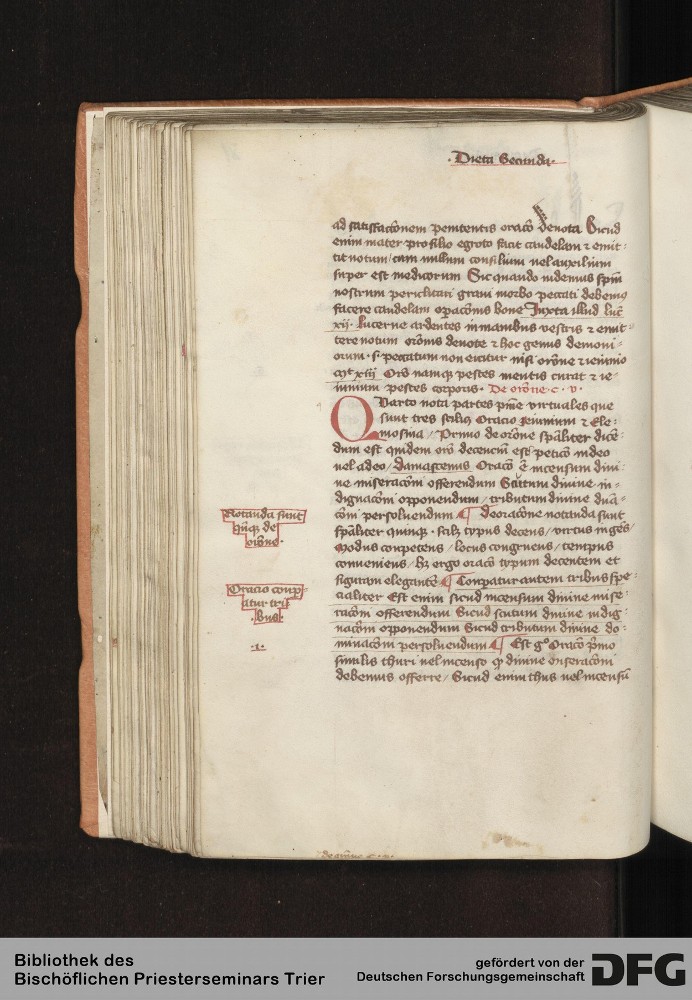 · Dieta Secunda ·
ad satisfaccionem penitentis oracio devota Sicud
enim mater pro filio egroto facit candelam ⁊ emit-
tit votum / cum nullum consilium vel auxilium
super est medicorum Sic quando videmus spm̄
nostrum periclitari gravi morbo peccati debemus
facere candelam opacōnis bone Juxta illud luc̄
xij. Lucerne ardentes in manibus vestris ⁊ emit-
tere votum orōnis devote ⁊ hoc genus demoni-
orum .s. peccatum non eicitur nisi orōne ⁊ ieiunio
xiij Orō namqꝫ pestes mentis curat ⁊ ie-
iunium pestes corporis · De orōne · c · v ·
Quarto nota partes pn̄ie virtuales que
sunt tres scilꝫ Oracio Jeiunium ⁊ Ele-
mosina / Primo de orōne spāliter dicē-
dum est quidem orō decencium est peticō in deo
vel a deo / damascenus Oracō ē incensum divi-
ne miseracōni offerendum Scutum divine in-
dignacōni opponendum / tributum divine duā-
cōni persolvendum ¶ de oracōne notanda sunt
spāliter quinqꝫ · scilꝫ typus decens / virtus ingēs /
Modus conpetens / locus congruens / tempus
conveniens / hꝫ ergo oracō typum decentem et
figuram elegantē ¶ Conpatur autem tribus spe-
cialiter Est enim sicud incensum divine mise-
racōni offerendum Sicud scutum divine indig-
nacōni opponendum Sicud tributum divine do-
minacōni persolvendum ¶ Est gͦ Oracō pͥmo
similis thuri vel incenso qꝫ divine miseracōni
debemus offerre / Sicud enim thus vel incensū
Notanda sunt
qn̄qꝫ de
orōne ·
Oracio conp-
atur tri-
bus ·
· 1 ·
de orōne c · v ·
Bibliothek des
Bischöflichen Priesterseminars Trier
gefördert von der
Deutschen Forschungsgemeinschaft
DFG